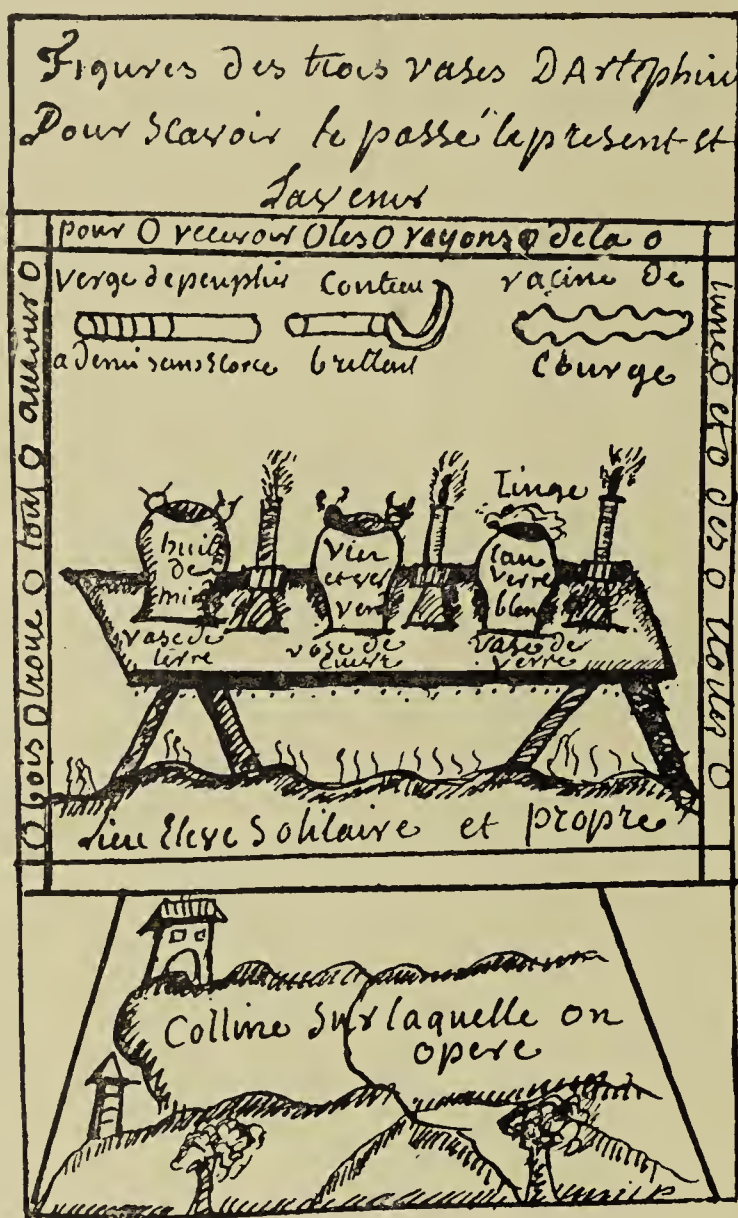 Figures des trois vases DArtephiu
Pour scavoir le passé le present et
Lavenir
pour O recevoir O les O rayons O de la O
lune O et O des O etoiles O
O bois O troué O tout O autour O
verge de peuplier
a demi sans ecorce
Couteau
brillant
racine de
Courge
Linge
huile
de
vase de
terre
vin
et
vase de
cuivre
verre
vase de
verre
Lieu Eleve Solitaire et propre
Colline Sur laquelle on
opere